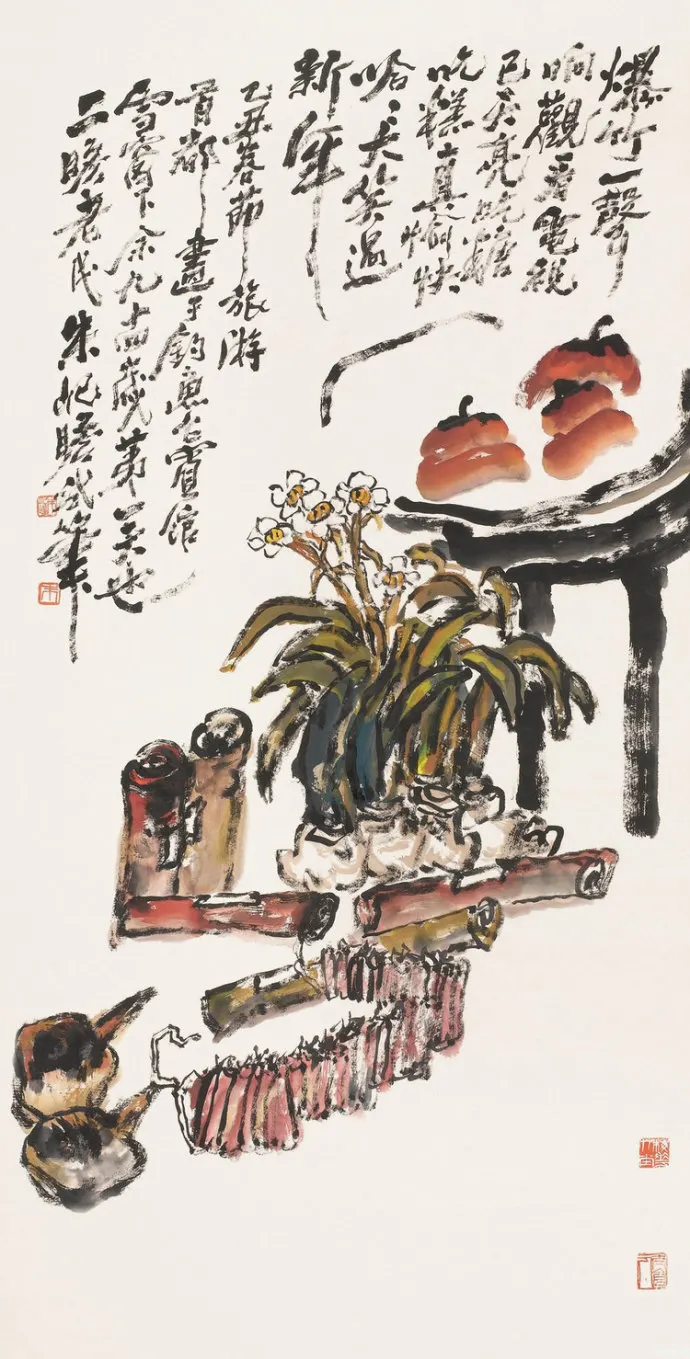 爆竹一聲
响觀看電視
已天亮吃糖
吃糕真愉快
哈〻大笑過
新年
乙丑春節旅游
首都畫于釣魚台賓館
雪窗下余九十四歲第也
二瞻老民朱屺瞻戏筆